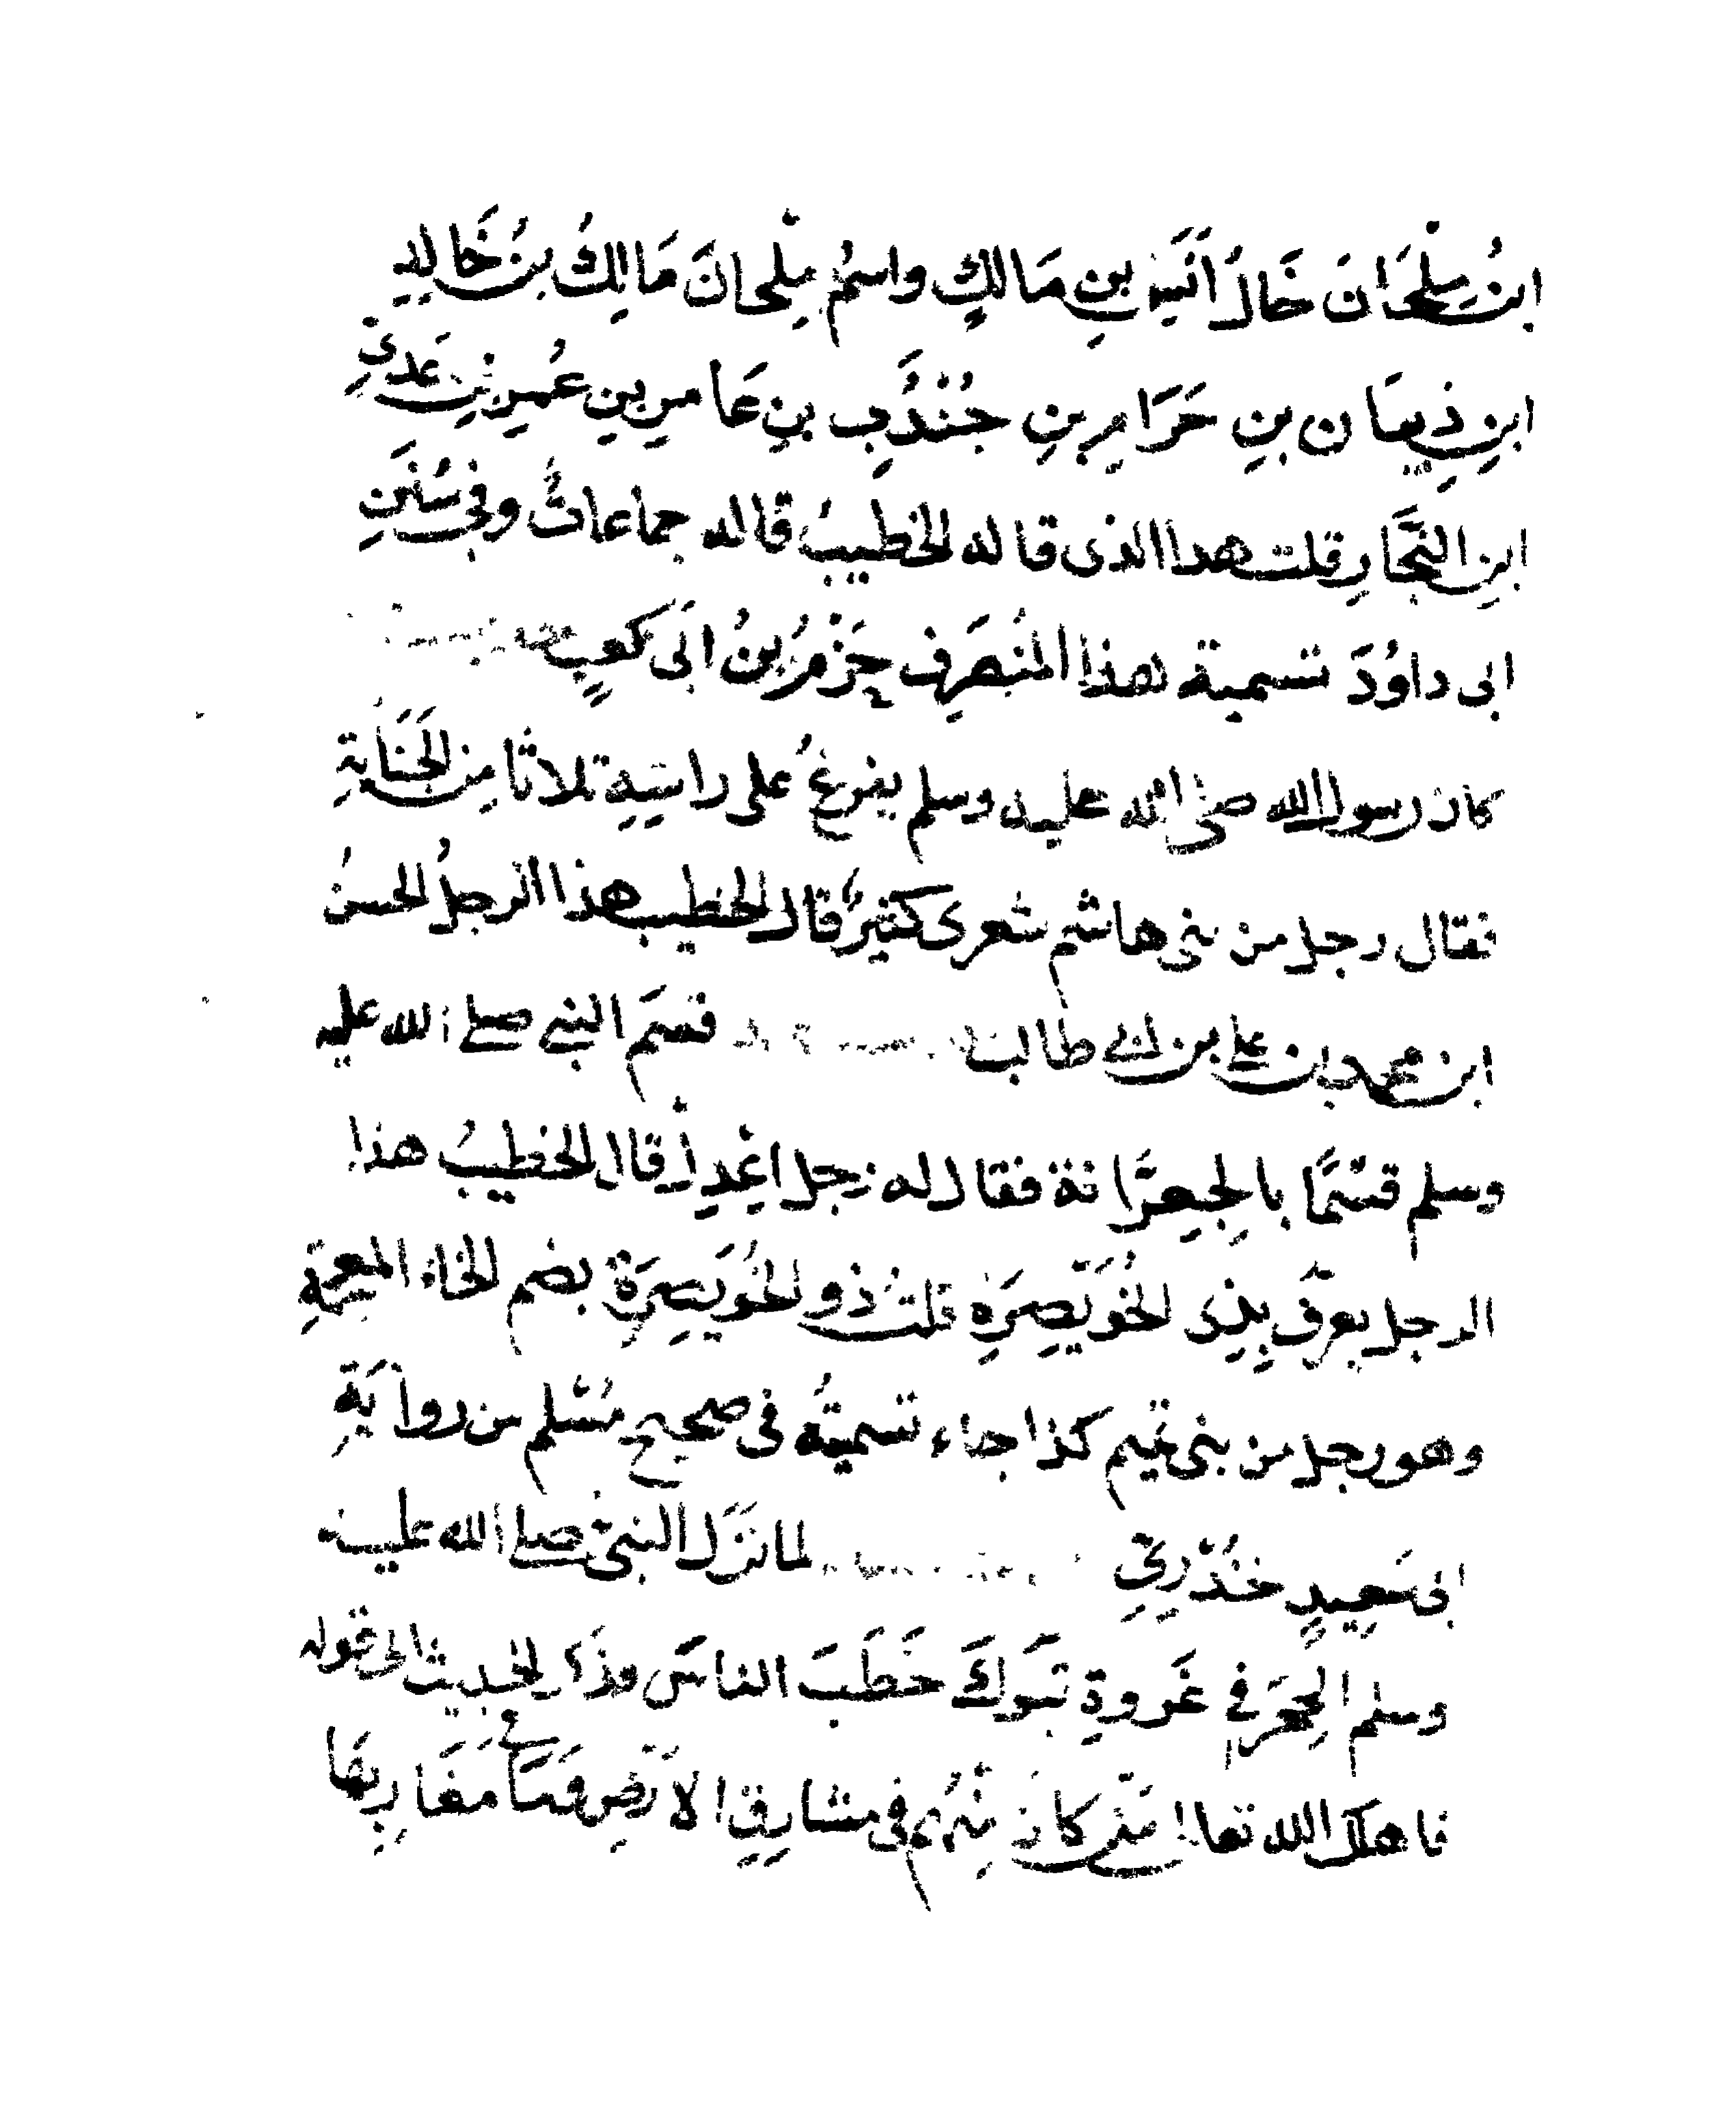 ابنُ مِلْحَانَ خَالُ أنَسِ بنِ مَالكٍ واسمُ مِلْحانَ مَالِكُ بنُ خَالِدِ
ابنِ ذِيبَان بنِ حَرَامِ بنِ جُنْدَُبِ بنِ عَامرِ بنِ عُمير بنِ عَدِيِّ
ابنِ النَّجَّارِ قلت هذا الذى قاله الخطيبُ قاله جماعاتٌ وفى سُنَنِ
ابى داوُدَ تسمية هذا المُنْصَرِف حَزْمُ بنُ ابَى كعبٍ
كان رسول الله صلى الله عليه وسلم يفرغُ على راسِهِ ثلاثا مِن الجَنَابَةِ
فقال رجل من بنى هاشم شعرى كثيرٌ قال الخطيب هذا الرجلُ الحسنُ
ابن محمد بن على بن ابى طالب قسَم النبى صلى الله عليه
وسلم قسْمًا بالجِعِرَّانة فقال له رجل اعْدِلْ قال الخطيبُ هذا
الرجل يعرفُ بِذِى الخُوَيْصِرَةِ قلتُ ذُو الخُوَيصِرَة بضم الخاء المعجمةِ
وهو رجل من بنى تميم كذا جاء تسميتُه فى صحيح مُسْلم من روايَةِ
ابى سَعِيدٍ خُدْرِيِّ لما نزَل النبىُّ صلى الله عليه
وسلم الحِجْرَ فى غَزوةِ تبَوكَ خَطَبَ الناسَ وذَكَر الحديث الى قوله
فاهلك الله تعالى مَنْ كانَ مِنْهُم فى مشارِقِ الارْضِ ومَغَارِبِهَا